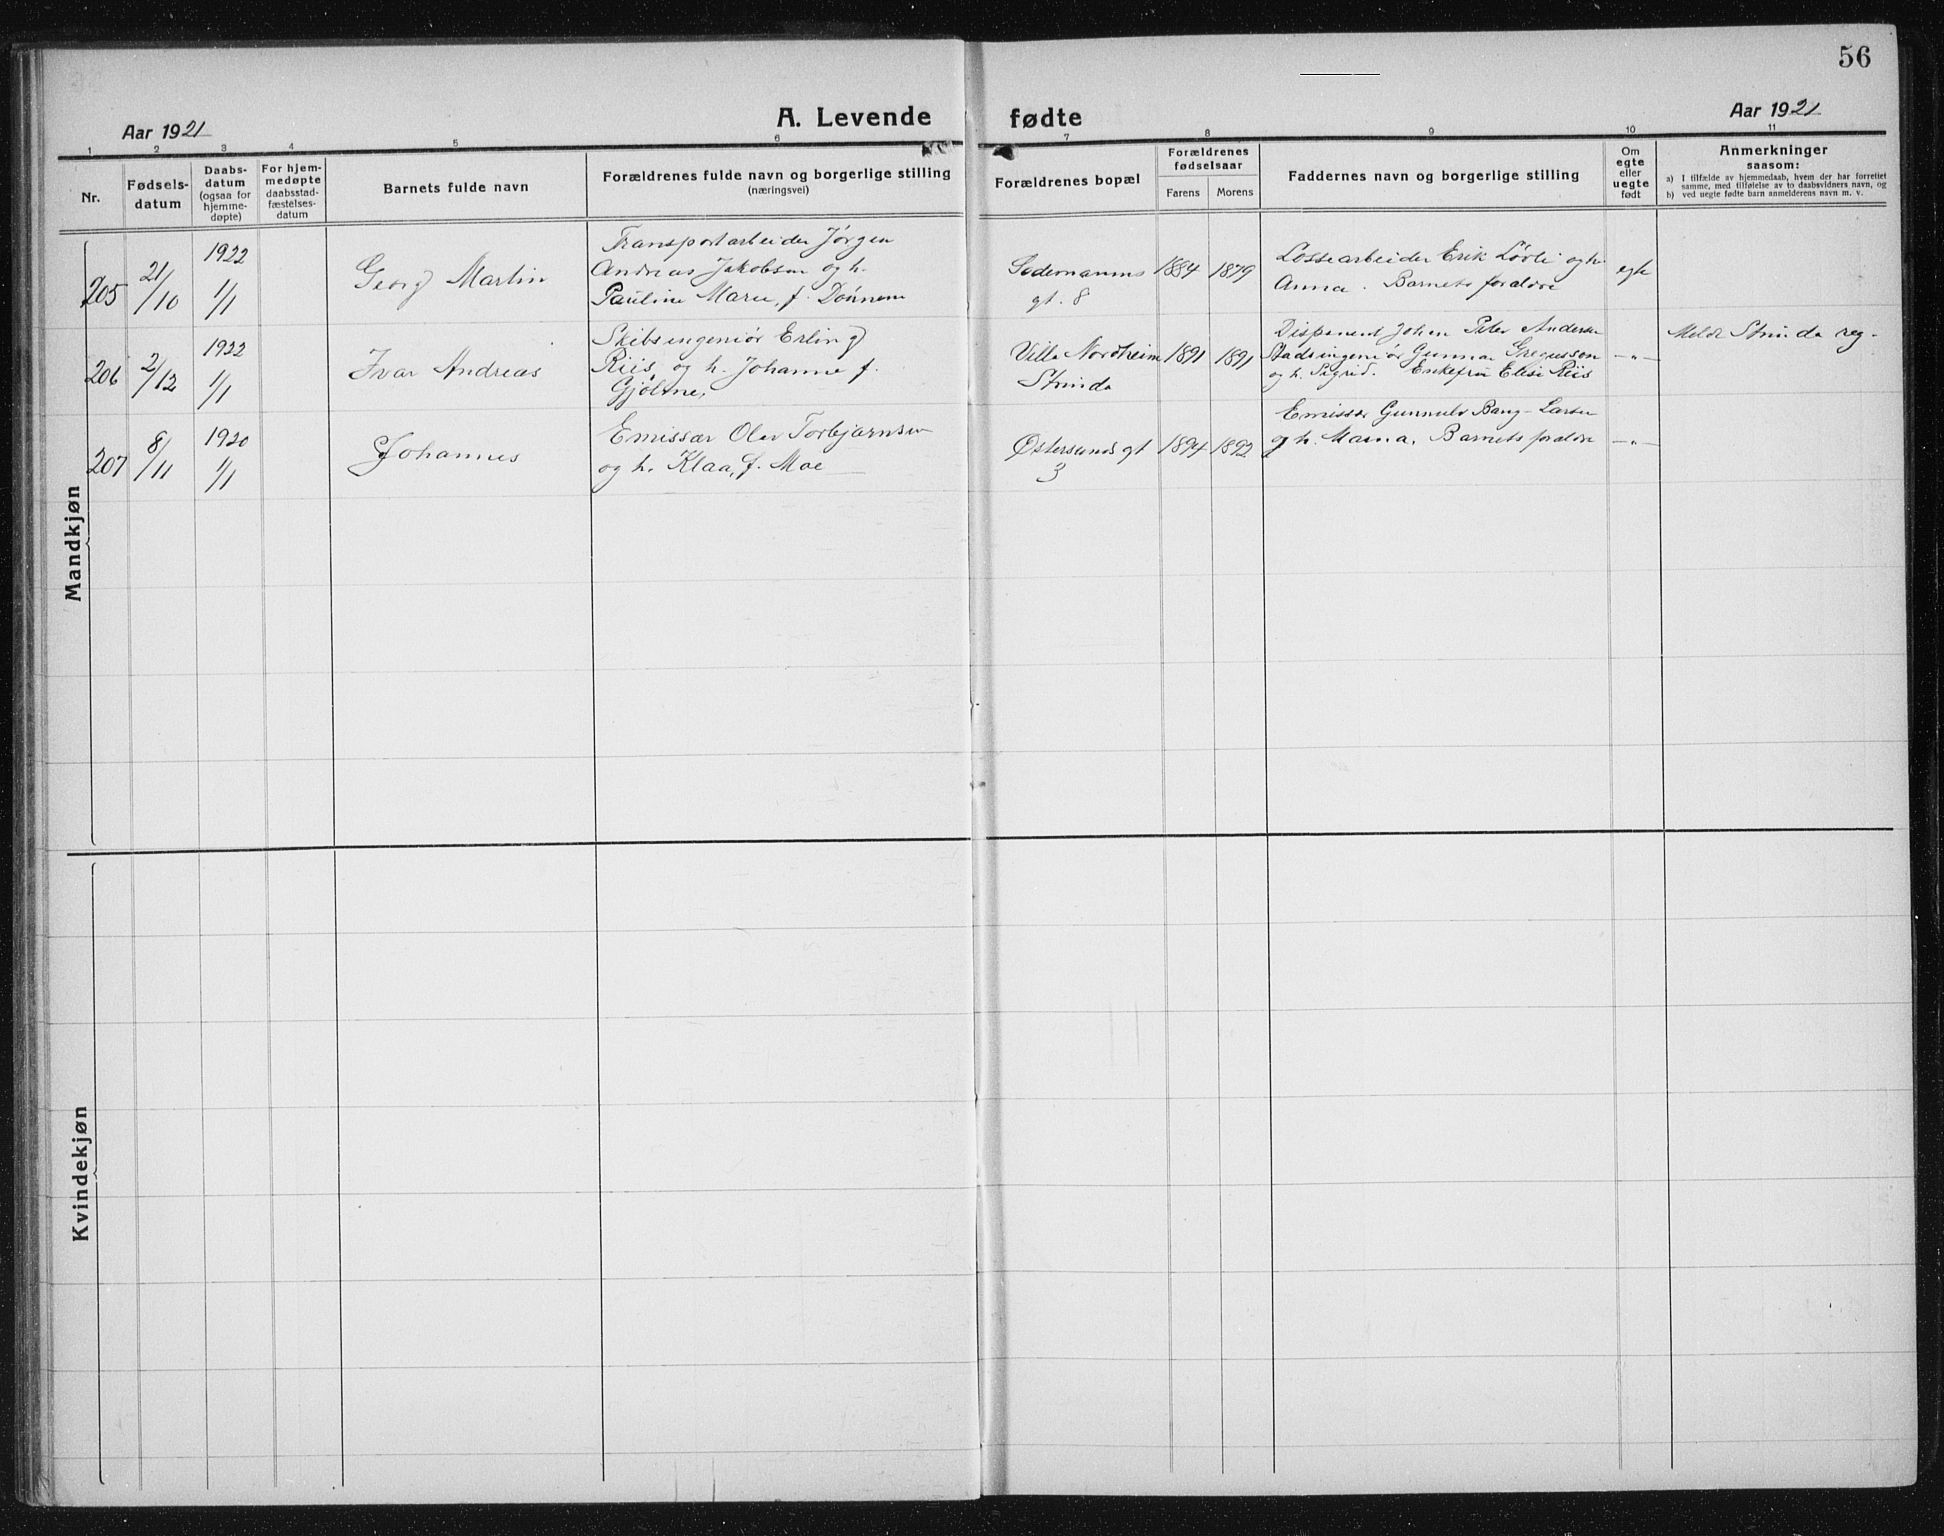 56
A. Levende fødte
Aar 1921
Aar 1921
1 2 3 4 5 6 7 8 9 10 11
Nr.
Fødsels-
datum
Daabs-
datum
(ogsaa for
hjemme-
døpte)
For hjem-
medøpte
daabsstad-
fæstelses-
datum
Barnets fulde navn
Forældrenes fulde navn og borgerlige stilling
(næringsvei)
Forældrenes bopæl
Forældrenes
fødselsaar
Farens Morens
Faddernes navn og borgerlige stilling
Om
egte
eller
uegte
født
Anmerkninger
saasom:
a) I tilfælde av hjemmedaab, hvem der har forrettet
samme, med tilføielse av to daabsvidners navn, og
b) ved uegte fødte barn anmelderens navn m. v.
Mandkjøn
205
21/10
1922
1/1
Georg Martin
Transportarbeider Jørgen
Andreas Jakobsen og h.
Pauline Marie, f. Dönnem
Sodemanns
gt. 8
1884 1879
Lossearbeider Erik Løvli og h.
Anna. Barnets forældre
egte
206
2/12
1922
1/1
Ivar Andreas
Skibsingeniør Erling
Riis og h. Johanne f.
Gjölme,
Villa Nordheim
Strinda
1891 1891
Disponent Johan Peter Anderse
Stadsingeniör Gunnar Gregusson
og h. Sigrid. Enkefru Elise Riis
-"-
Meldt Strinda reg-
207
8/11
1920
1/1
Johannes
Emissær Olav Torbjørnsen
og h. Klaa, f. Moe
Østersunds gt
3
1894 1892
Emissær Gunnulv Bang-Larsen
og h. Marna, Barnets forældre
-"-
Kvindekjøn